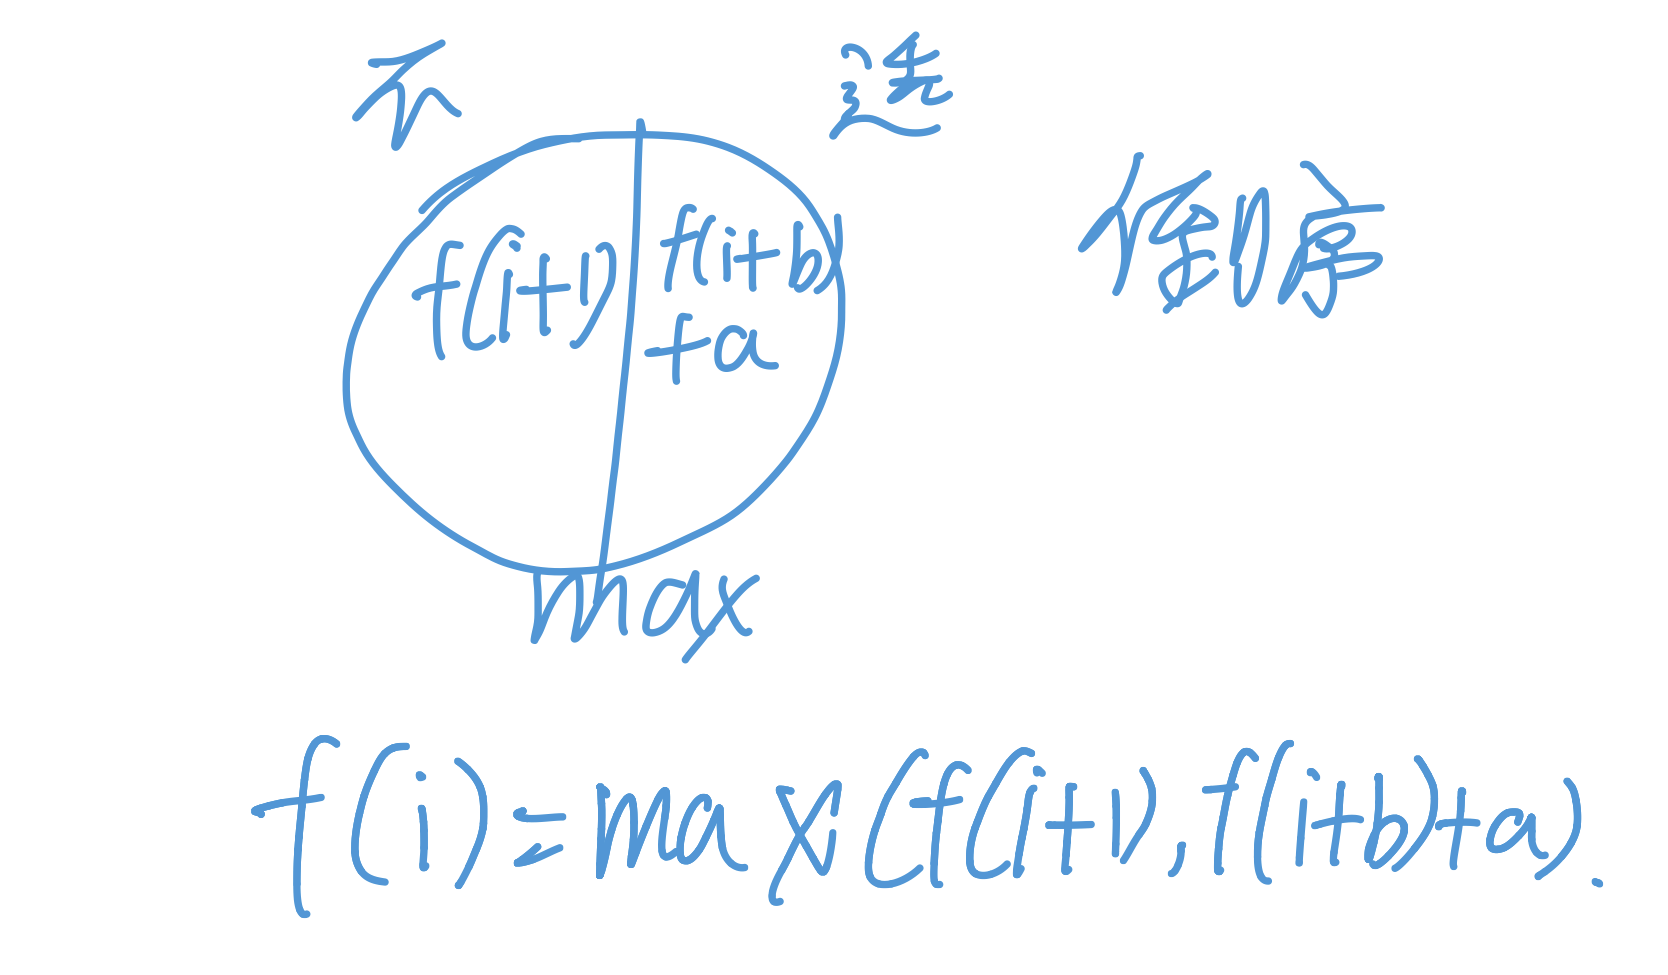 不 选
倒序
f(i+1) f(i+b)
+a
max
f(i)=max(f(i+1),f(i+b)+a).